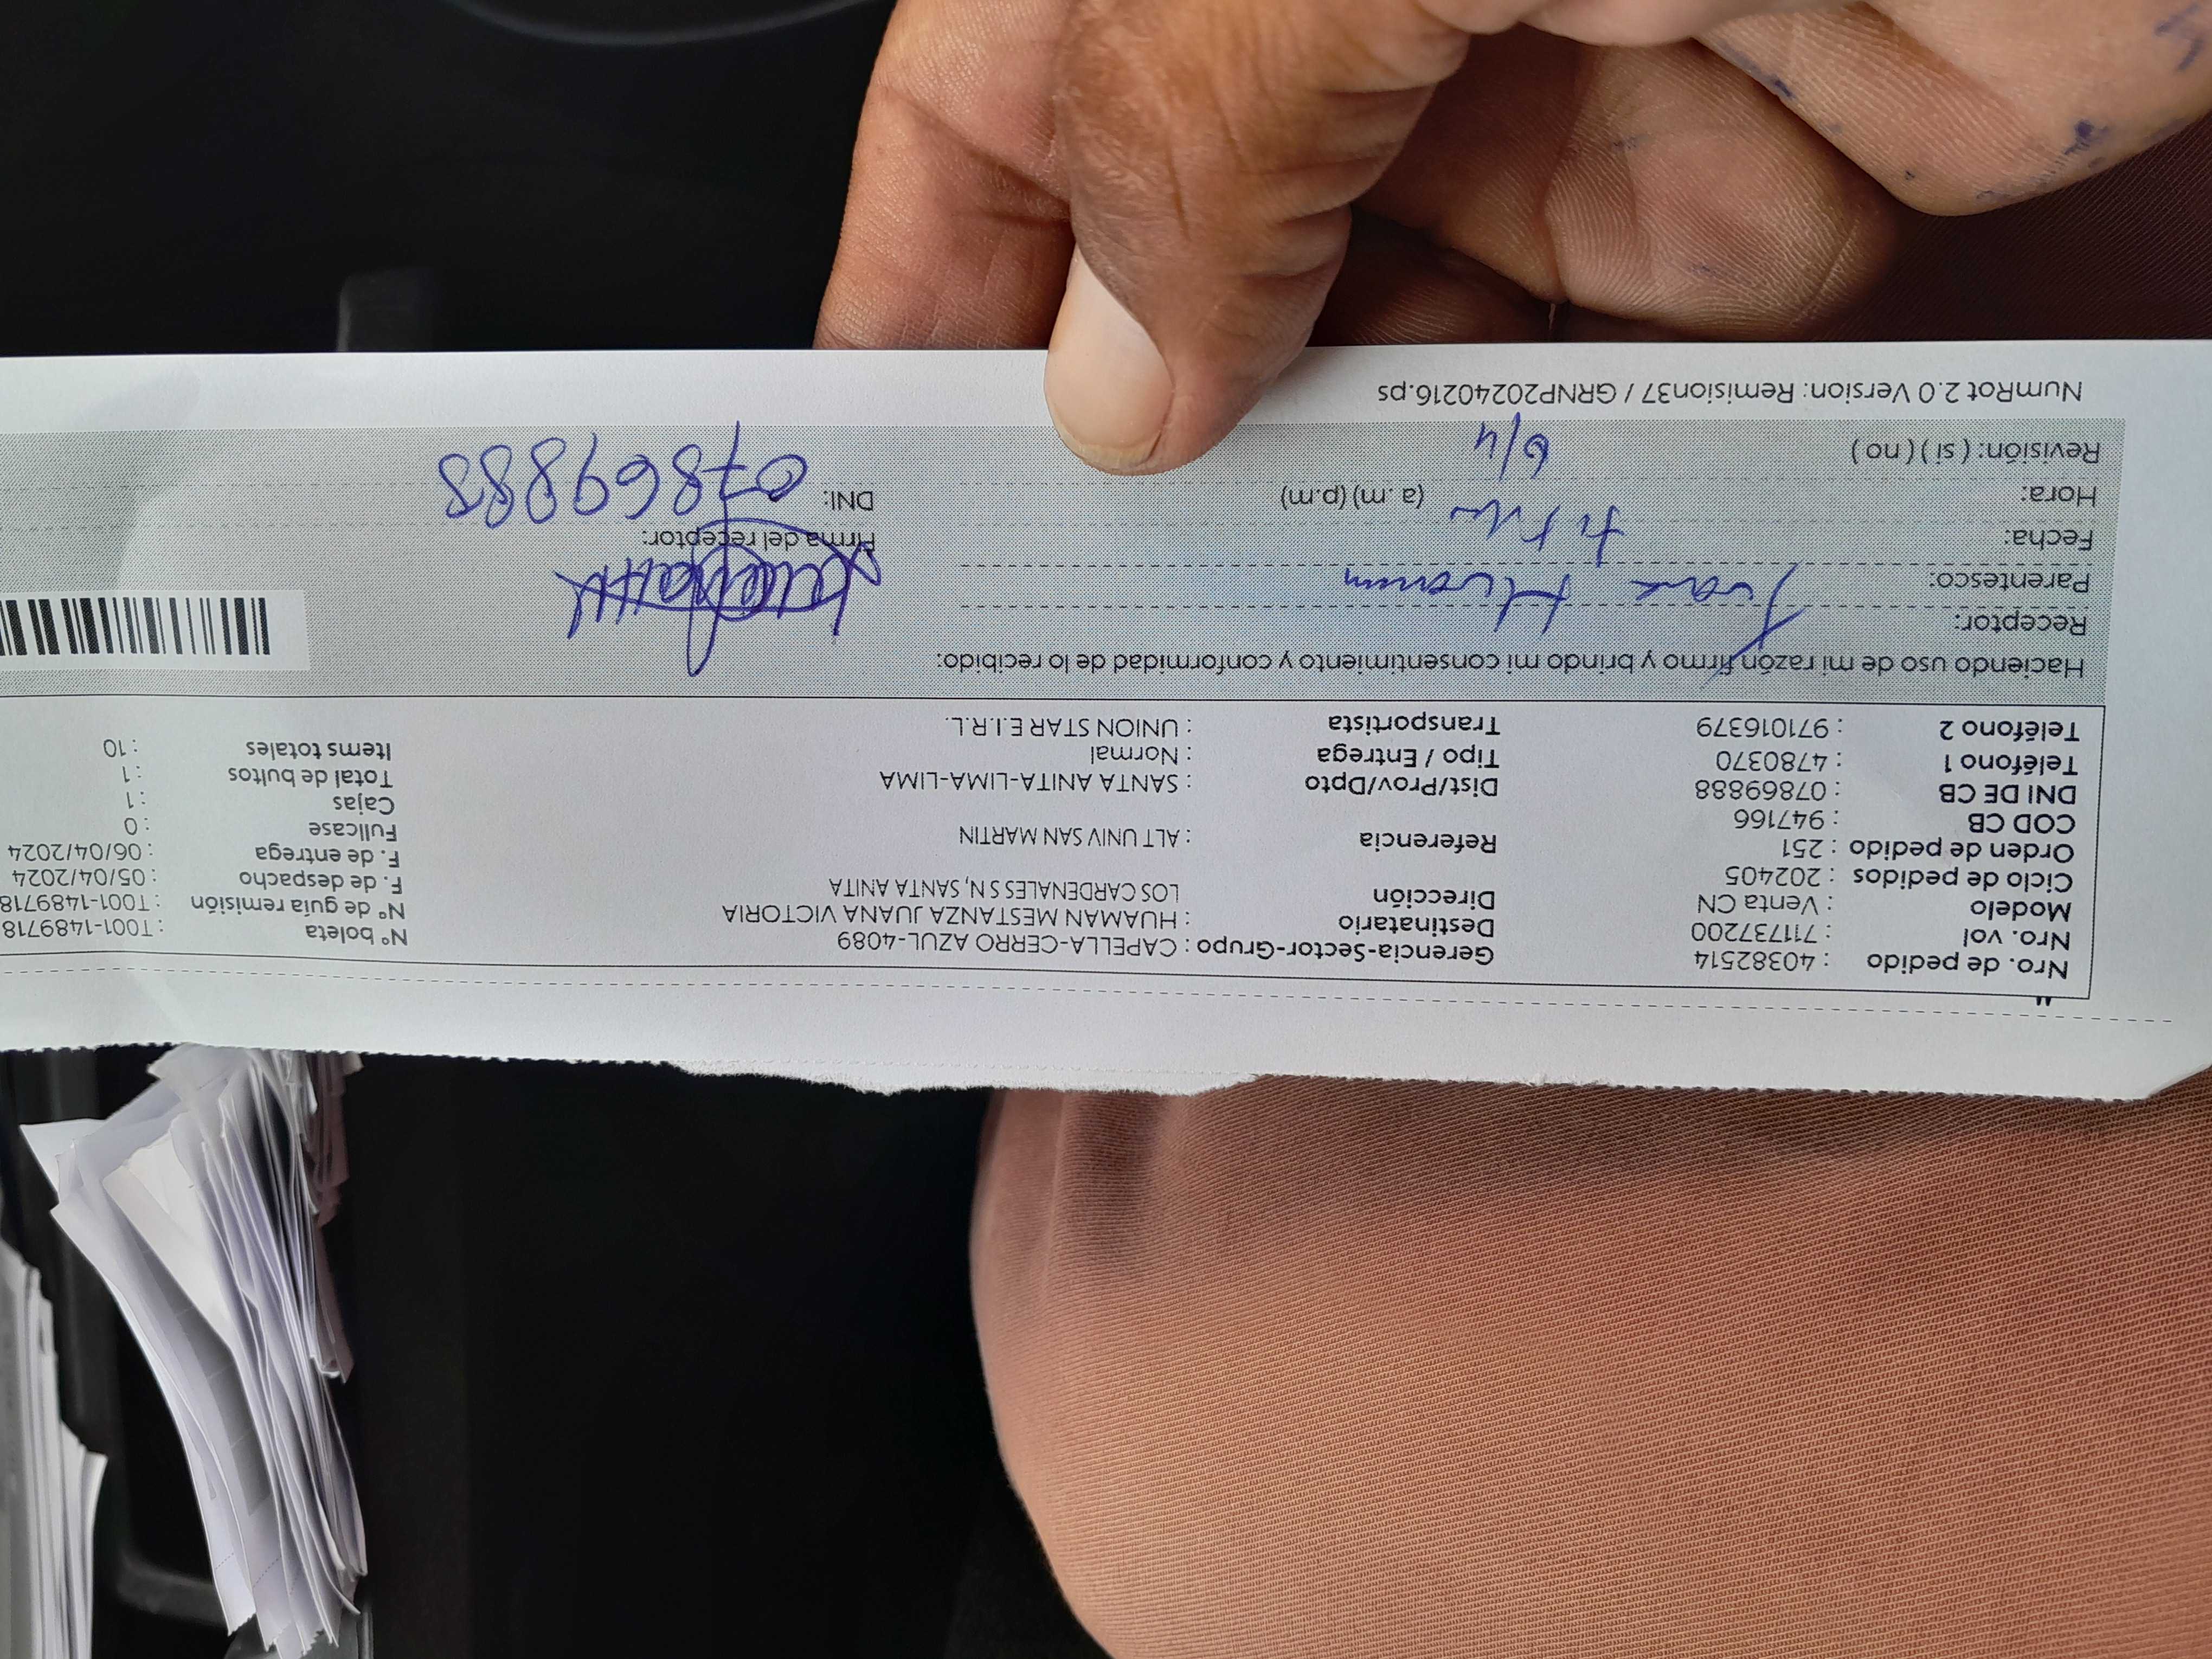 Nro. de pedido : 40382514 Gerencia-Sector-Grupo : CAPELLA-CERRO AZUL-4089 N° boleta : T001-1489718
Nro. vol : 711737200 Destinatario : HUAMAN MESTANZA JUANA VICTORIA N° de guía remisión : T001-1489718
Modelo : Venta CN Dirección LOS CARDENALES S N, SANTA ANITA F. de despacho : 05/04/2024
Ciclo de pedidos : 202405 F. de entrega : 06/04/2024
Orden de pedido : 251 Referencia : ALT UNIV SAN MARTIN Fullcase : 0
COD CB : 947166 Cajas : 1
DNI DE CB : 07869888 Dist/Prov/Dpto : SANTA ANITA-LIMA-LIMA Total de bultos : 1
Teléfono 1 : 4780370 Tipo / Entrega : Normal Items totales : 10
Teléfono 2 : 971016379 Transportista : UNION STAR E.I.R.L.
Haciendo uso de mi razón firmo y brindo mi consentimiento y conformidad de lo recibido:
Receptor: Juana Huaman
Parentesco:
Fecha: Firma del receptor:
Hora: (a.m) (p.m) DNI: 07869888
Revisión: ( si ) ( no ) 6/4
NumRot 2.0 Version: Remision37 / GRNP20240216.ps